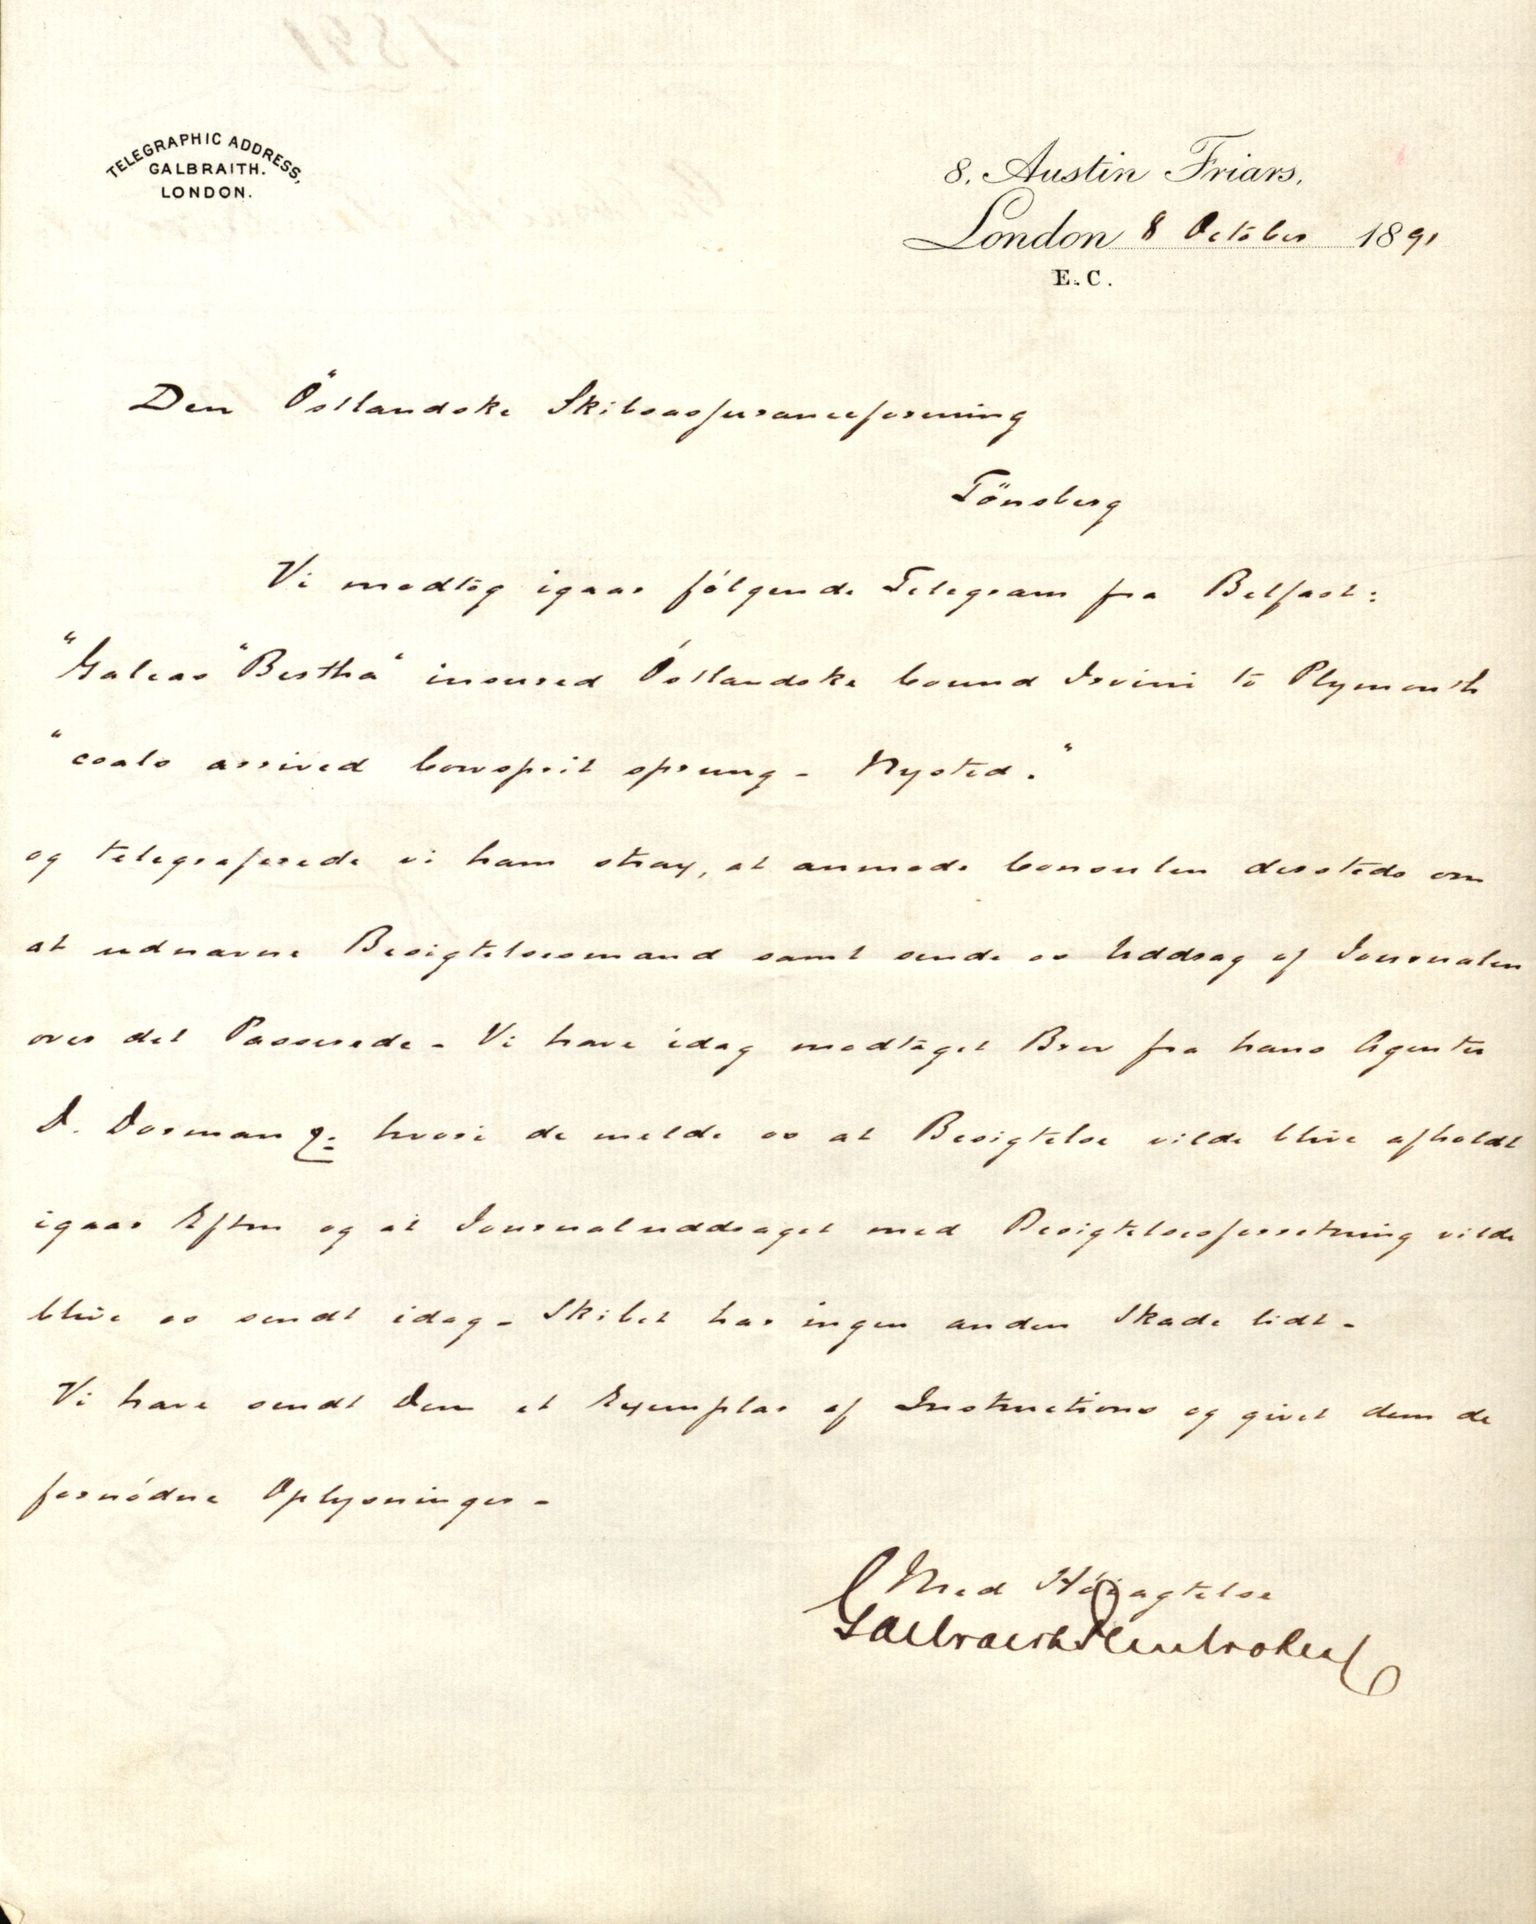 TELEGRAPHIC ADDRESS,
GALBRAITH.
LONDON.
8, Austin Friars,
London 8 October 1891
E.C.
Den Östlandske Skibsassuranceforening
Tönsberg
Vi modtog igaar fólgende Telegram fra Belfast:
"Galeas "Bertha" insured Óstlandske bound Irvine to Plymouth
"coals arrived bowsprit sprung - Nysted."
og telegraferede vi ham strax, at anmode Consulen dersteds om
at udnævne Besigtelsesmænd samt sende os Uddrag af Journalen
over det Passerede - Vi have idag modtaget Brev fra hans Agenter
D. Dorman hvori de melde os at Besigtelse vilde blive afholdt
igaar Eftm og at Journaluddraget med Besigtelsesforretning vilde
blive os sendt idag - Skibet har ingen anden Skade lidt -
Vi have sendt Dem et Exemplar af Instructions og givet dem de
fornódne Oplysninger -
Med Hóiagtelse
Galbraith Pembroke